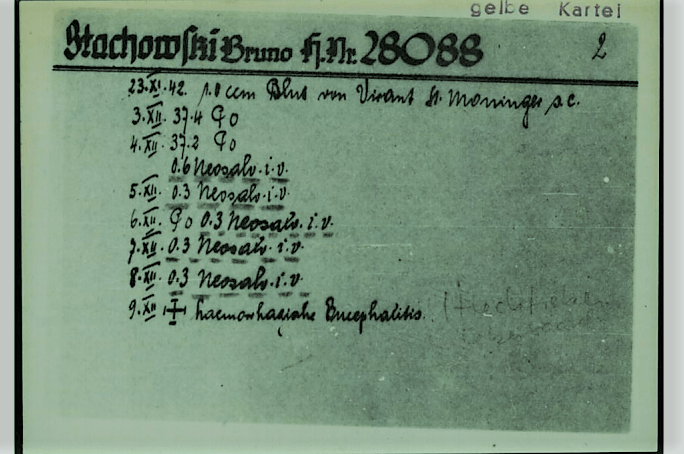 gelbe Kartei
Stachowski Bruno H.Nr. 28088 2
23.XI.42. 10 ccm Blut von Virant St. Moninger s.c.
3.XII. 37.4 Qo
4.XII. 37.2 Qo
0.6 Neosalv. i.v.
5.XII. 0.3 Neosalv. i.v.
6.XII. Qo 0.3 Neosalv. i.v.
7.XII. 0.3 Neosalv. i.v.
8.XII. 0.3 Neosalv. i.v.
9.XII haemorhagische Encephalitis.